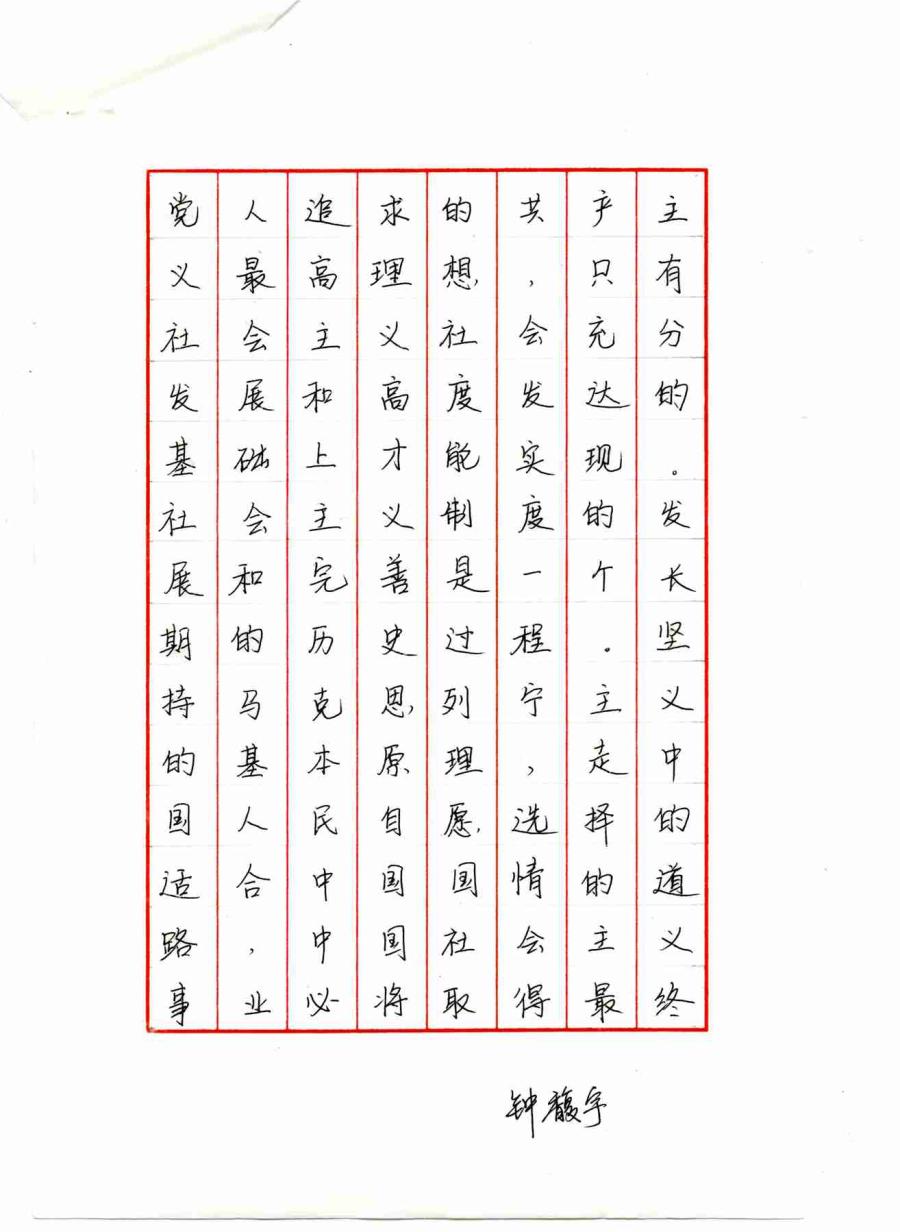 党人追求的共产主
义最高理想，只有
社会主义社会充分
发展和高度发达的
基础上才能实现。
社会主义制度的发
展和完善是一个长
期的历史过程。坚
持马克思列宁主义
的基本原理，走中
国人民自愿选择的
适合中国国情的道
路，中国社会主义
事业必将取得最终
钟馥宇